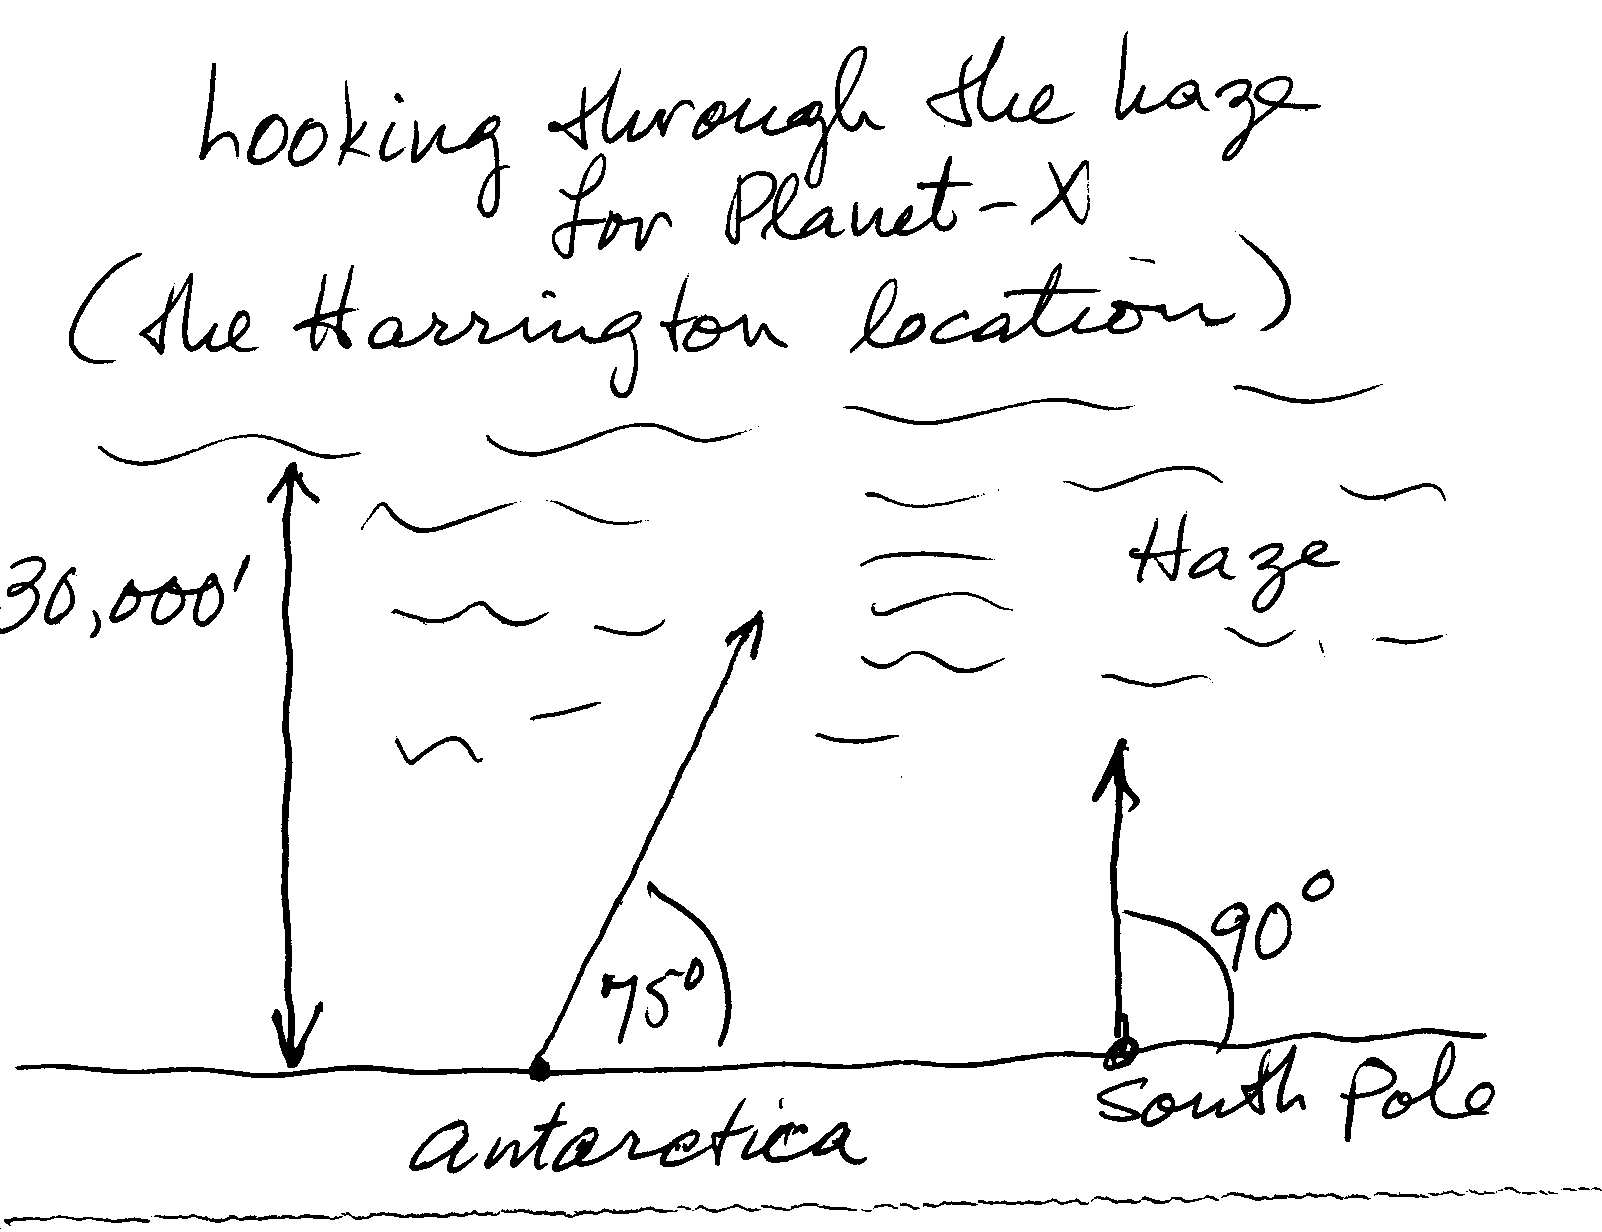 Looking through the haze
for Planet-X
(the Harrington location)
30,000'
Haze
75°
90°
South Pole
Antarctica